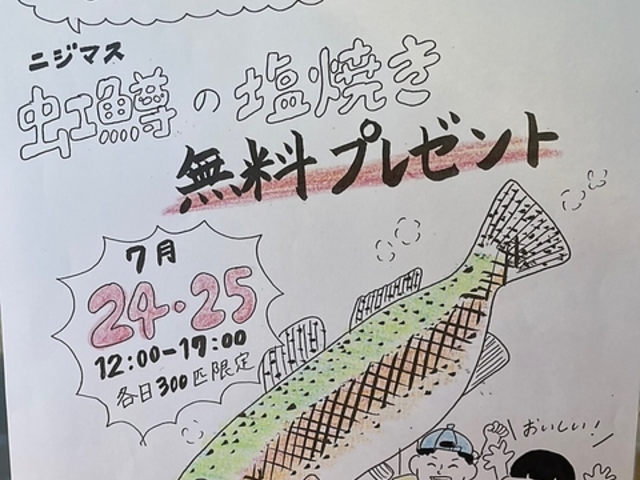 ニジマス
虹鱒の塩焼き
無料プレゼント
7月
24・25
12:00-17:00
各日300匹限定
おいしい!